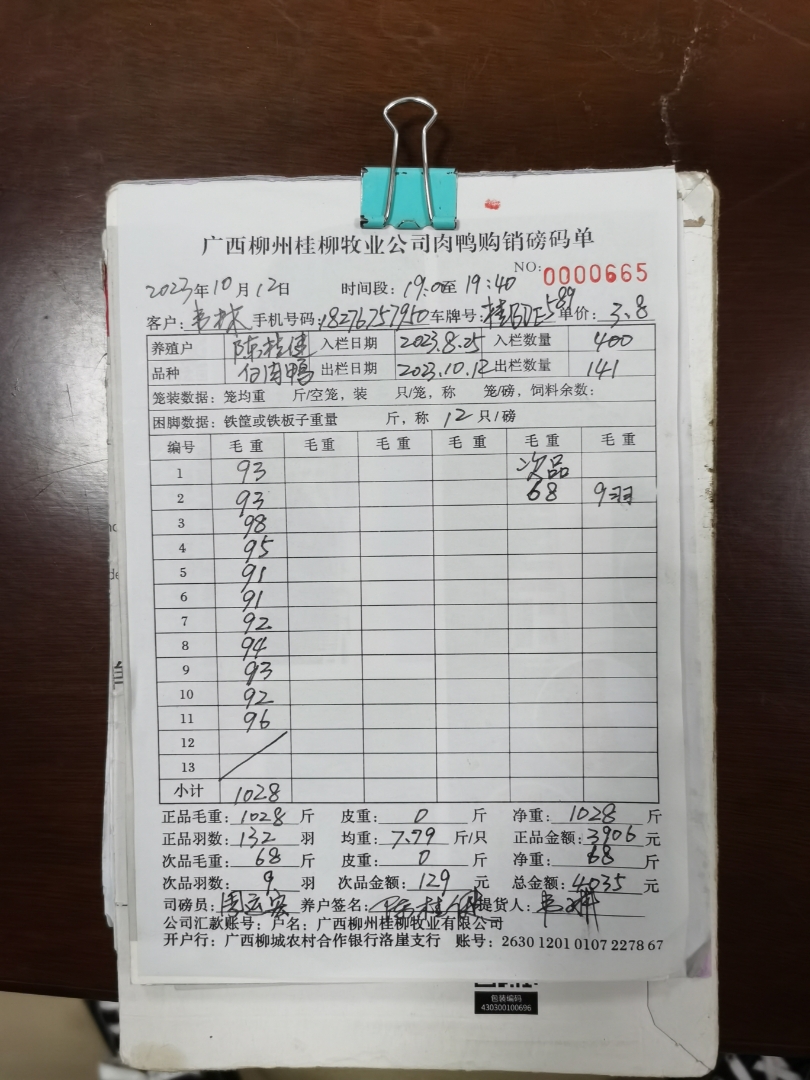 广西柳州桂柳牧业公司肉鸭购销磅码单
NO: 0000665
2023年10月12日 时间段: 19:0至19:40
客户: 韦林 手机号码: 18276757950 车牌号: 桂BDE589 单价: 3.8
养殖户 陈桂健 入栏日期 2023.8.25 入栏数量 400
品种 白肉鸭 出栏日期 2023.10.12 出栏数量 141
笼装数据: 笼均重 斤/空笼, 装 只/笼, 称 笼/磅, 饲料余数:
困脚数据: 铁筐或铁板子重量 斤, 称 12 只/磅
编号 毛重 毛重 毛重 毛重 毛重 毛重
1 93 次品
2 93 68 9羽
3 98
4 95
5 91
6 91
7 92
8 94
9 93
10 92
11 96
12
13
小计 1028
正品毛重: 1028 斤 皮重: 0 斤 净重: 1028 斤
正品羽数: 132 羽 均重: 7.79 斤/只 正品金额: 3906 元
次品毛重: 68 斤 皮重: 0 斤 净重: 68 斤
次品羽数: 9 羽 次品金额: 129 元 总金额: 4035 元
司磅员: 周运宏 养户签名: 陈桂健 提货人: 韦
公司汇款账号: 户名: 广西柳州桂柳牧业有限公司
开户行: 广西柳城农村合作银行洛崖支行 账号: 2630 1201 0107 2278 67
包装编码
430300100696